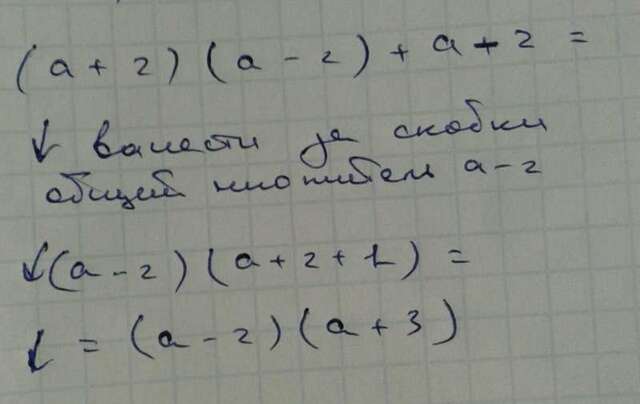 (a + 2) (a - 2) + a - 2 =
↓ вынести за скобки
общий множитель a - 2
↓ (a - 2) (a + 2 + 1) =
↓ = (a - 2) (a + 3)